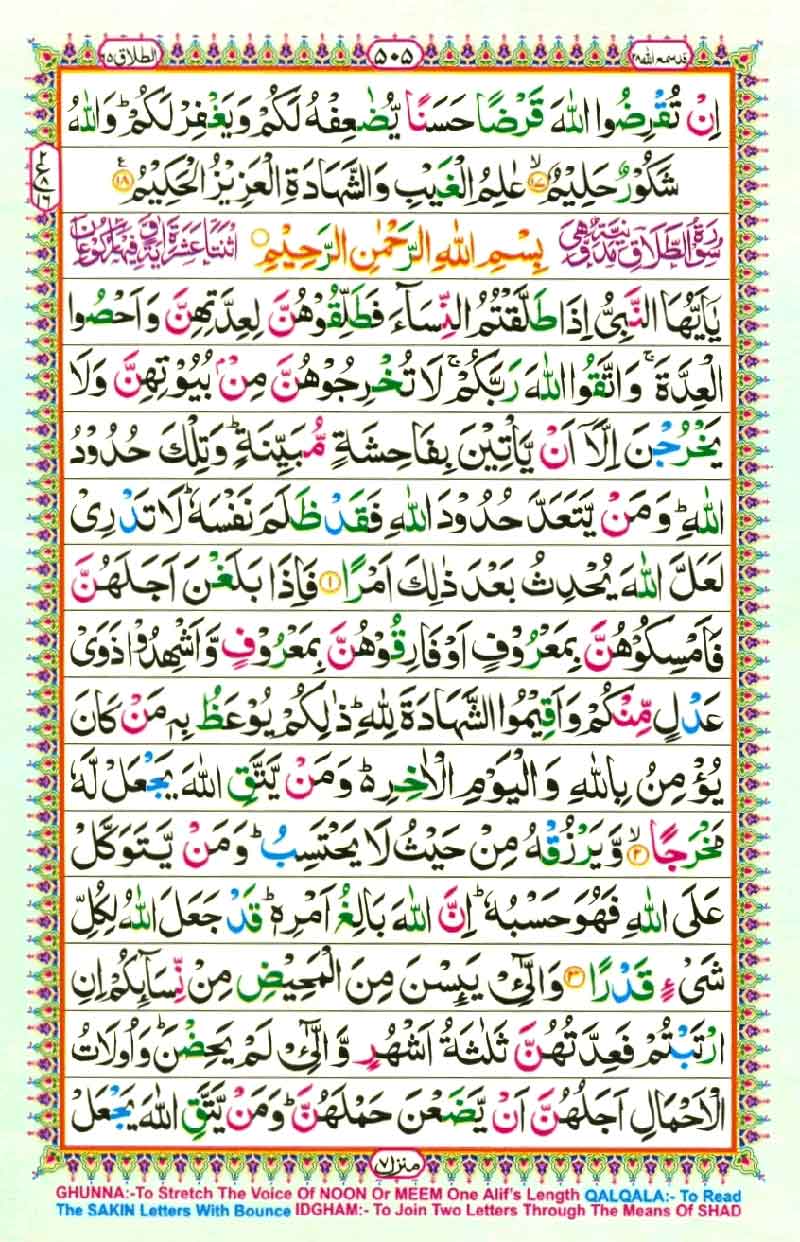 قد سمع الله ٢٨
٥٠٥
الطلاق ٦٥
اِنْ تُقْرِضُوا اللّٰهَ قَرْضًا حَسَنًا يُّضٰعِفْهُ لَكُمْ وَيَغْفِرْ لَكُمْ ؕ وَاللّٰهُ
شَكُوْرٌ حَلِيْمٌ ۙ‏﴿۱۷﴾ عٰلِمُ الْغَيْبِ وَالشَّهَادَةِ الْعَزِيْزُ الْحَكِيْمُ ﴿۱۸﴾
ع ٢ ٨ ١٦
سُوْرَةُ الطَّلَاقِ مَدَنِيَّةٌ وَّهِيَ بِسْمِ اللّٰهِ الرَّحْمٰنِ الرَّحِيْمِ اثْنَتَا عَشْرَةَ اٰيَةً وَّفِيْهَا رُكُوْعَانِ
يٰۤاَيُّهَا النَّبِيُّ اِذَا طَلَّقْتُمُ النِّسَآءَ فَطَلِّقُوْهُنَّ لِعِدَّتِهِنَّ وَاَحْصُوا
الْعِدَّةَ ۚ وَاتَّقُوا اللّٰهَ رَبَّكُمْ ۚ لَا تُخْرِجُوْهُنَّ مِنْۢ بُيُوْتِهِنَّ وَلَا
يَخْرُجْنَ اِلَّاۤ اَنْ يَّاْتِيْنَ بِفَاحِشَةٍ مُّبَيِّنَةٍ ؕ وَتِلْكَ حُدُوْدُ
اللّٰهِ ؕ وَمَنْ يَّتَعَدَّ حُدُوْدَ اللّٰهِ فَقَدْ ظَلَمَ نَفْسَهٗ ؕ لَا تَدْرِىْ
لَعَلَّ اللّٰهَ يُحْدِثُ بَعْدَ ذٰلِكَ اَمْرًا ﴿۱﴾ فَاِذَا بَلَغْنَ اَجَلَهُنَّ
فَاَمْسِكُوْهُنَّ بِمَعْرُوْفٍ اَوْ فَارِقُوْهُنَّ بِمَعْرُوْفٍ وَّاَشْهِدُوْا ذَوَىْ
عَدْلٍ مِّنْكُمْ وَاَقِيْمُوا الشَّهَادَةَ لِلّٰهِ ؕ ذٰلِكُمْ يُوْعَظُ بِهٖ مَنْ كَانَ
يُؤْمِنُ بِاللّٰهِ وَالْيَوْمِ الْاٰخِرِ ؕ وَمَنْ يَّتَّقِ اللّٰهَ يَجْعَلْ لَّهٗ
مَخْرَجًا ۙ‏﴿۲﴾ وَّيَرْزُقْهُ مِنْ حَيْثُ لَا يَحْتَسِبُ ؕ وَمَنْ يَّتَوَكَّلْ
عَلَى اللّٰهِ فَهُوَ حَسْبُهٗ ؕ اِنَّ اللّٰهَ بَالِغُ اَمْرِهٖ ؕ قَدْ جَعَلَ اللّٰهُ لِكُلِّ
شَىْءٍ قَدْرًا ﴿۳﴾ وَالّٰٓئِىْ يَئِسْنَ مِنَ الْمَحِيْضِ مِنْ نِّسَآئِكُمْ اِنِ
ارْتَبْتُمْ فَعِدَّتُهُنَّ ثَلٰثَةُ اَشْهُرٍ وَّالّٰٓئِىْ لَمْ يَحِضْنَ ؕ وَاُولَاتُ
الْاَحْمَالِ اَجَلُهُنَّ اَنْ يَّضَعْنَ حَمْلَهُنَّ ؕ وَمَنْ يَّتَّقِ اللّٰهَ يَجْعَلْ
منزل ٧
GHUNNA:-To Stretch The Voice Of NOON Or MEEM One Alif's Length QALQALA:- To Read
The SAKIN Letters With Bounce IDGHAM:- To Join Two Letters Through The Means Of SHAD